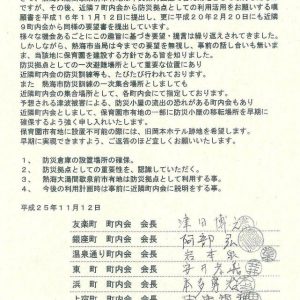 ですが、その後、近隣7町内会から防災拠点としての利活用をお願いする嘆
願書を平成16年11月12日に提出し、更に平成20年2月20日にも近隣
9町内会から同様の要望書を提出しています。
様々な機会あるごとにこの趣旨に基づき要望・提言は繰り返されてきました。
しかしながら、熱海市当局は今までの要望を無視し、事前の話し合いも無いま
ま、当該地に保育園を建設する方針である旨を知りました。
防災拠点としての一次避難場所として重要な位置にあり
近隣町内会の防災訓練等も、たびたび行われております。
また、熱海市防災訓練の一次集合場所としましても
近隣町内会の集合場所として、各町内会にて指定しております。
予想される津波被害による、防災小屋の流出の恐れがある町内会もあり
近隣町内会としまして、保育園市有地の一部に防災小屋の移転場所を早期に
確保するよう強く申し入れいたします。
保育園市有地に設置不可能の際には、旧岡本ホテル跡地も希望します。
早期に実現できますよう、ご返答のほど宜しくお願いいたします。
1 防災倉庫の設置場所の確保。
2 防災拠点としての重要性を、認識していただく。
3 熱海大湯間歇泉前市有地は防災拠点として利用する事。
4 今後の利用計画時は事前に近隣町内会に説明をする事。
平成25年11月12日
友楽町 町内会 会長
銀座町 町内会 会長 阿部
温泉通り町内会 会長 岩本
東町 町内会 会長
浜町 町内会 会長 本多
上宿町 町内会 会長